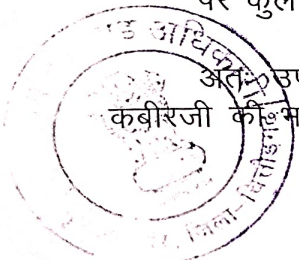 पर कुल
अतः उप
कबीरजी की भ
ण्ड अधिकारी
जिला- चित्तौड़गढ़